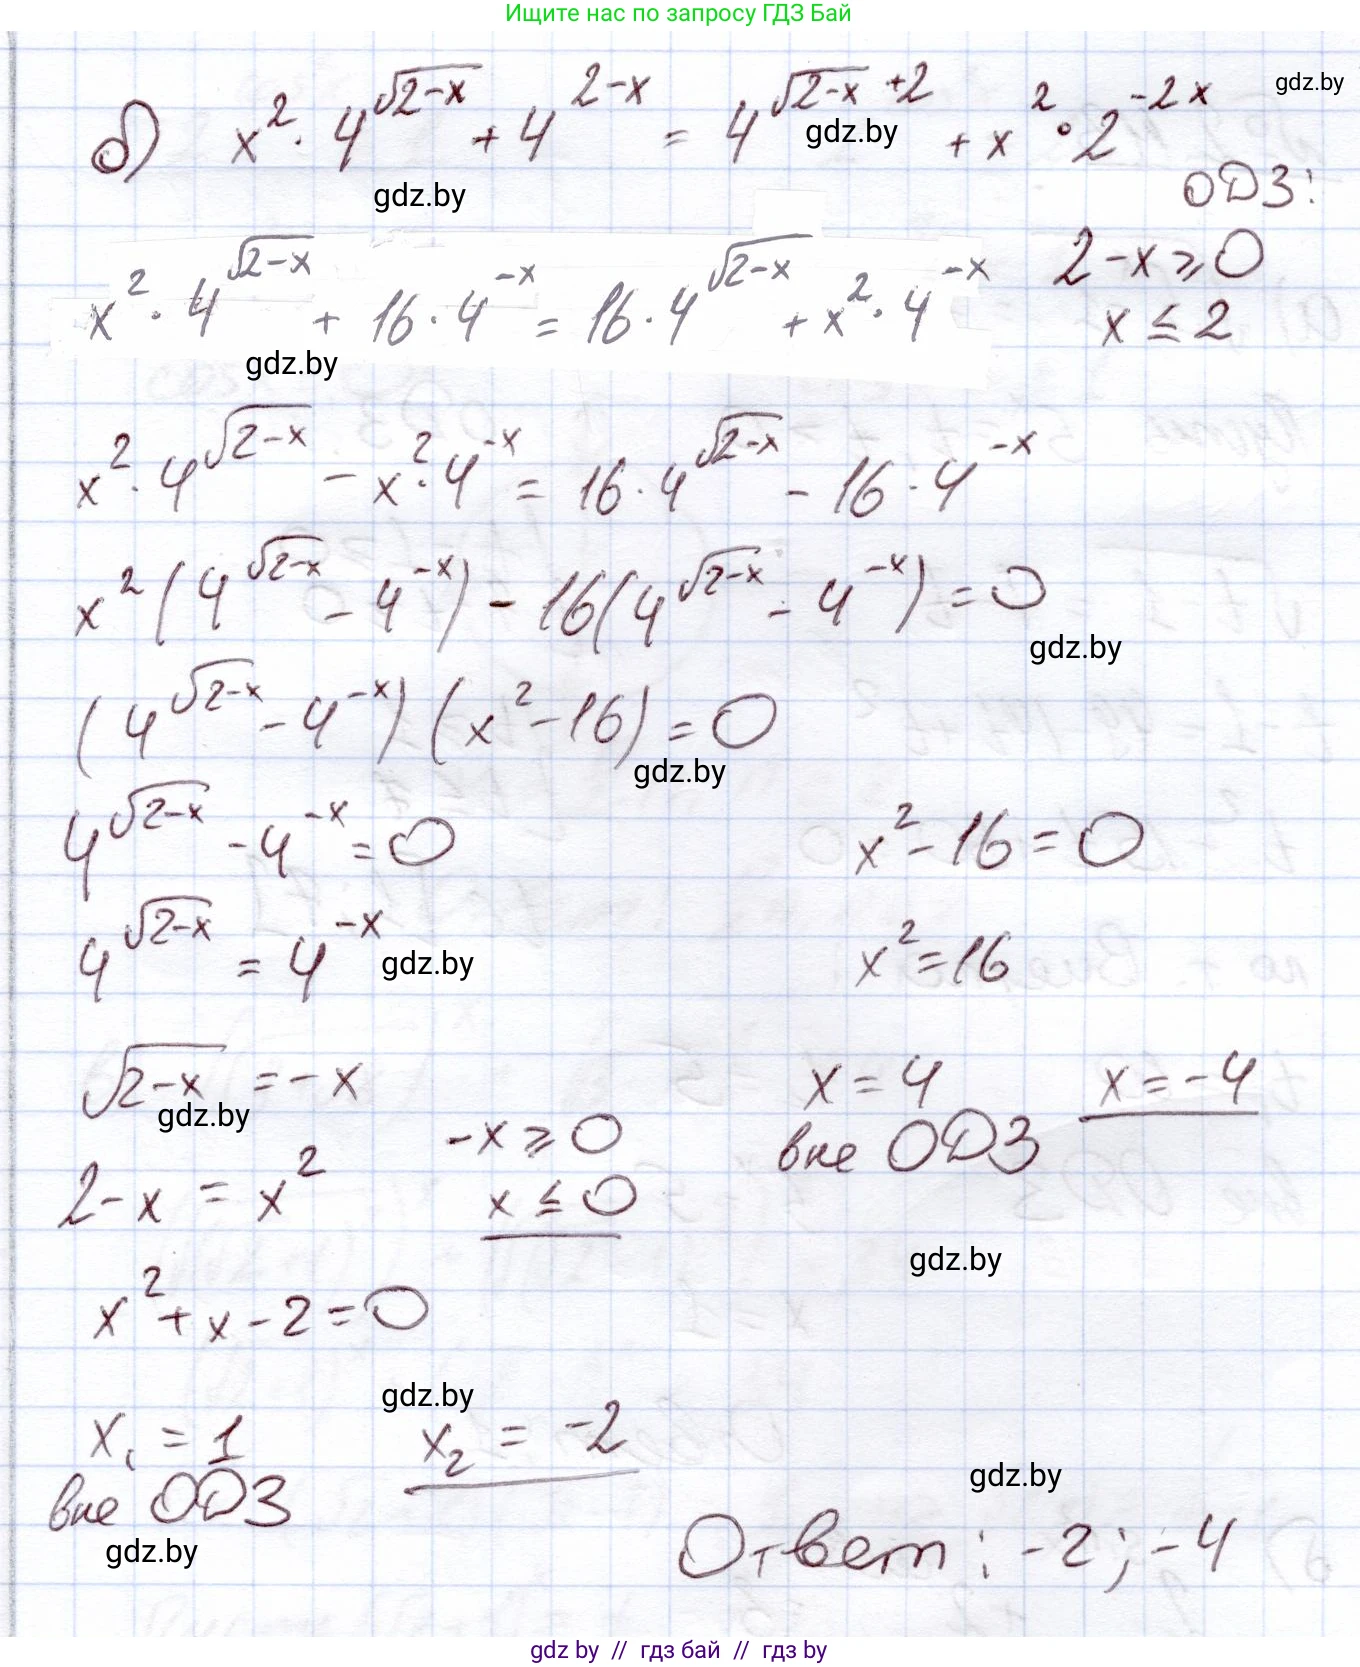 Ищите нас по запросу ГДЗ Бай
gdz.by
б) x² · 4^√(2-x) + 4^(2-x) = 4^(√(2-x) +2) + x² · 2^(-2x)
gdz.by
gdz.by
ОДЗ:
x² · 4^√(2-x) + 16 · 4^(-x) = 16 · 4^√(2-x) + x² · 4^(-x)
2-x ⩾ 0
x ≤ 2
gdz.by
x² · 4^√(2-x) - x² · 4^(-x) = 16 · 4^√(2-x) - 16 · 4^(-x)
x² (4^√(2-x) - 4^(-x)) - 16(4^√(2-x) - 4^(-x)) = 0
gdz.by
(4^√(2-x) - 4^(-x)) (x² - 16) = 0
gdz.by
4^√(2-x) - 4^(-x) = 0
x² - 16 = 0
4^√(2-x) = 4^(-x)
gdz.by
x² = 16
√(2-x) = -x
gdz.by
x = 4
x = -4
вне ОДЗ
-x ⩾ 0
2-x = x²
x ≤ 0
gdz.by
x² + x - 2 = 0
gdz.by
x₁ = 1
x₂ = -2
вне ОДЗ
gdz.by
gdz.by
Ответ: -2; -4
gdz by // гдз бай // гдз by